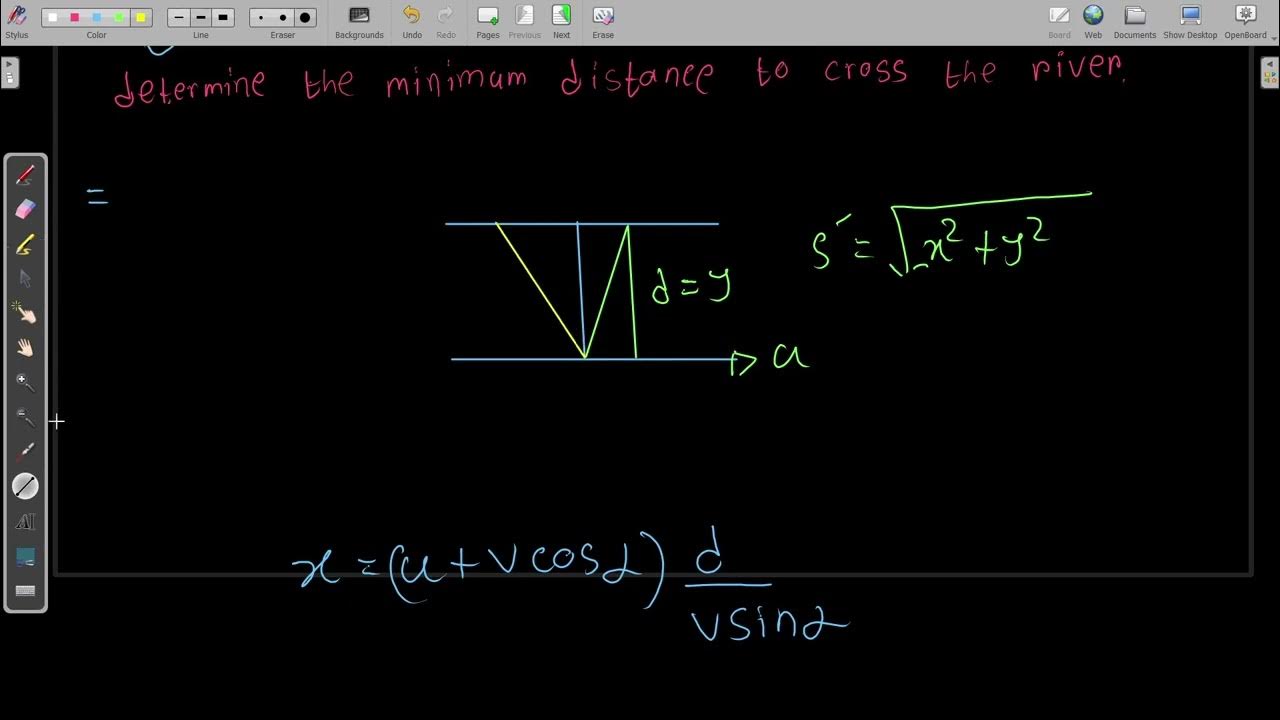 Stylus Color Line Eraser Backgrounds Undo Redo Pages Previous Next Erase Board Web Documents Show Desktop OpenBoard
determine the minimum distance to cross the river.
=
s´ = √x² + y²
d = y
u
x = (u + v cos α) d
v sin α
AI